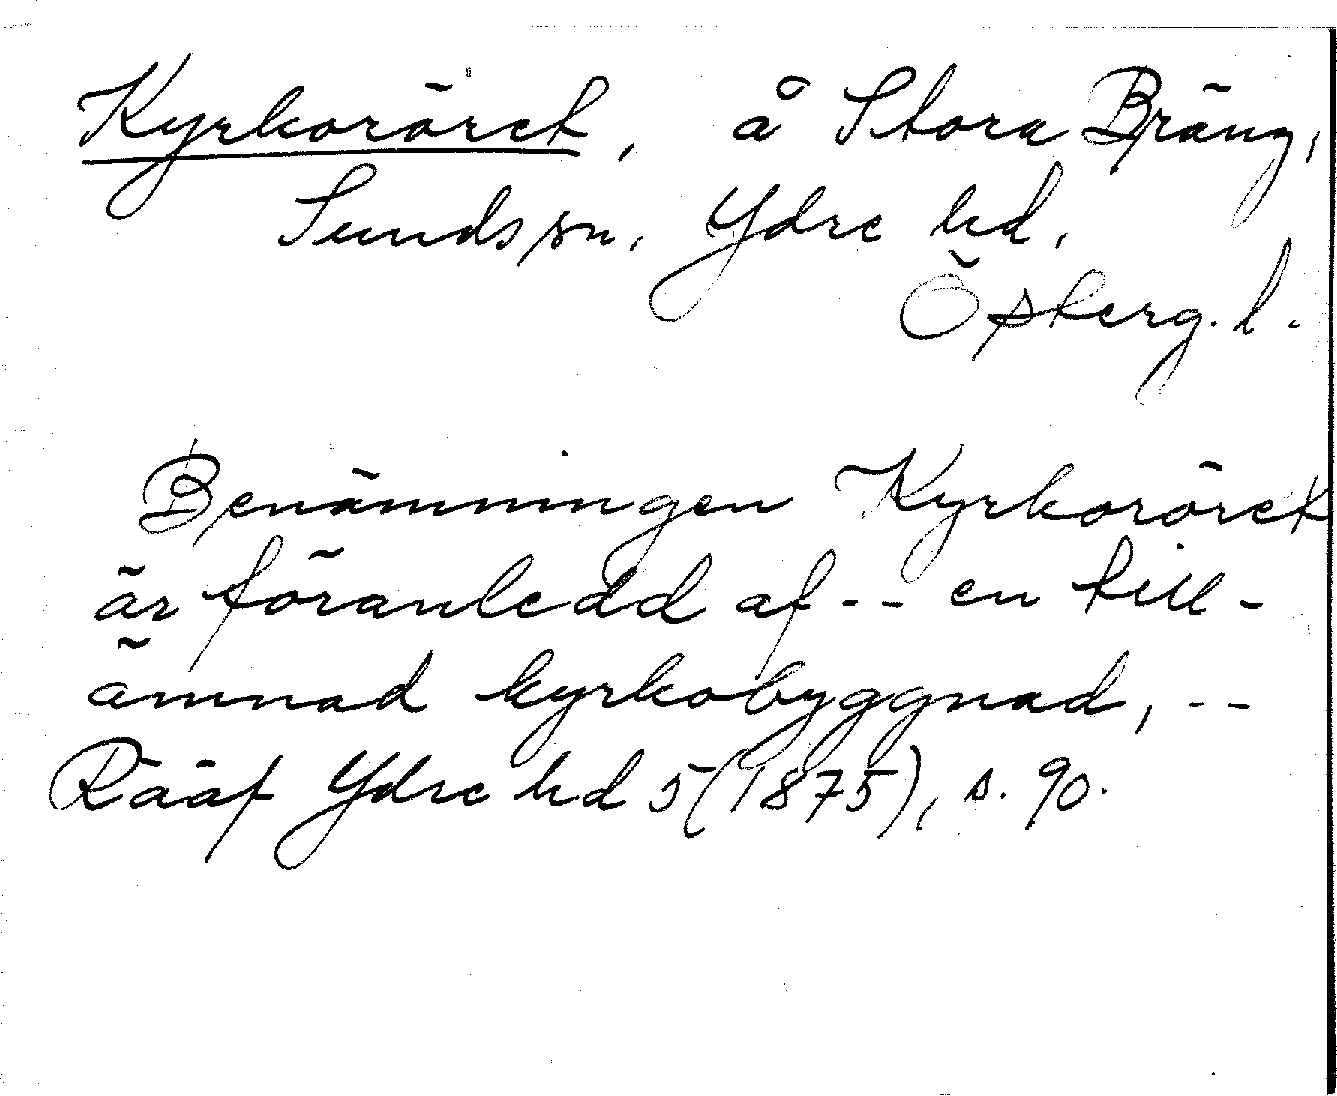 Kyrkoröret, å Stora Bräng,
Sunds sn. Ydre hd.
Österg. l.
Benämningen Kyrkoröret
är föranledd af -- en till-
ämnad kyrkobyggnad, --
Rääf Ydre hd 5 (1875), s. 90.